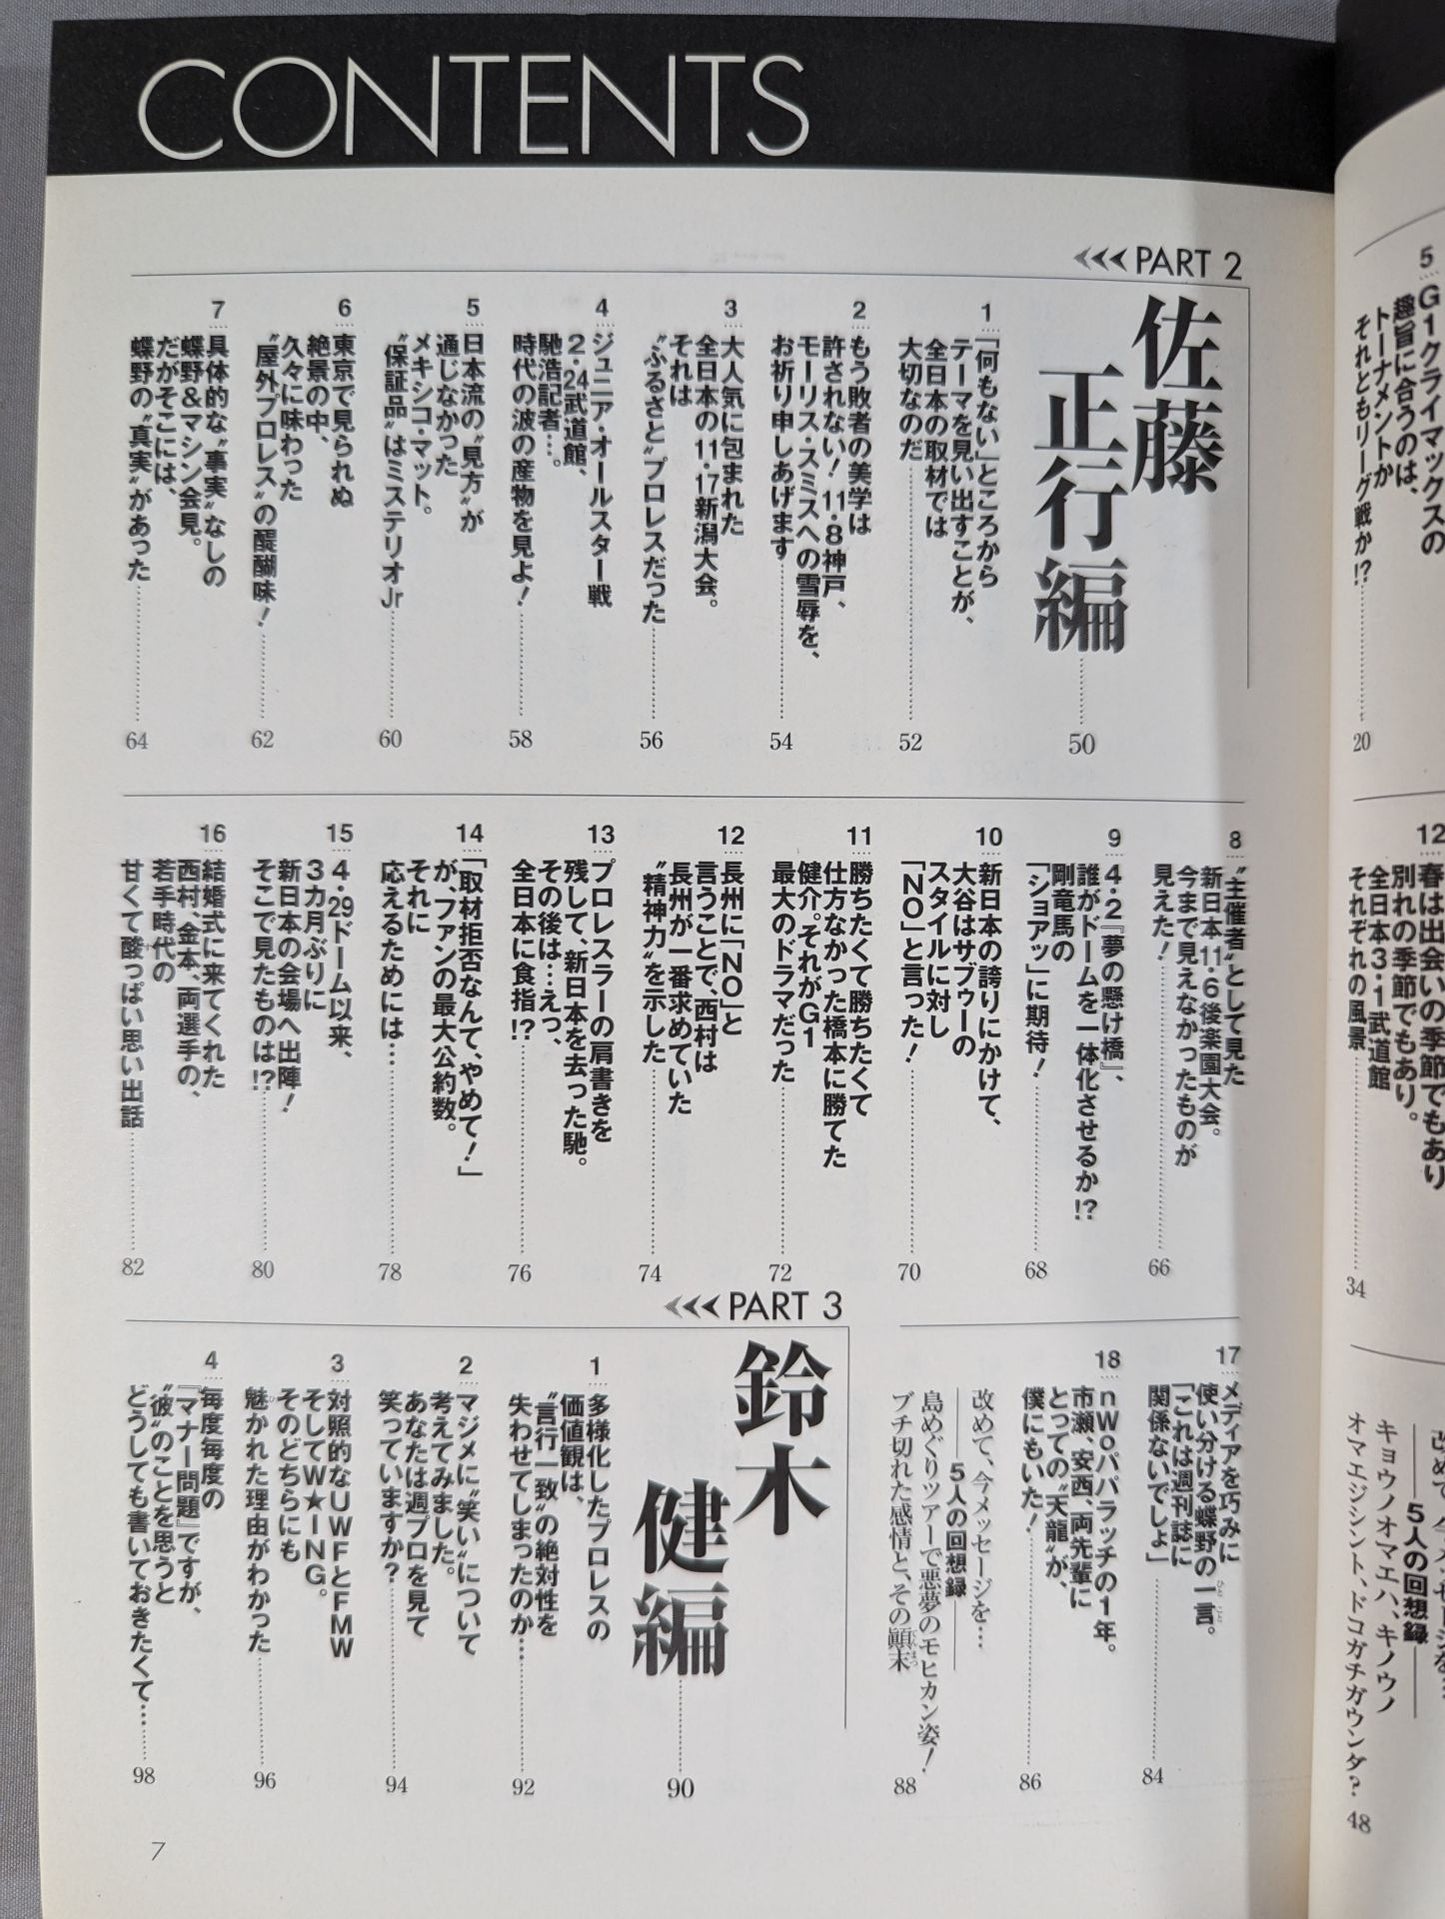 CONTENTS
PART 2
佐藤
正行編
50
1
「何もない」ところから
テーマを見い出すことが、
全日本の取材では
大切なのだ
52
2
もう敗者の美学は
許されない！11・8神戸、
モーリス・スミスへの雪辱を、
お祈り申しあげます
54
3
大人気に包まれた
全日本の11・17新潟大会。
それは
〝ふるさと〟プロレスだった
56
4
ジュニア・オールスター戦
2・24武道館、
馳浩記者…。
時代の波の産物を見よ！
58
5
日本流の〝見方〟が
通じなかった
メキシコ・マット。
〝保証品〟はミステリオJr
60
6
東京で見られぬ
絶景の中、
久々に味わった
〝屋外プロレス〟の醍醐味！
62
7
具体的な〝事実〟なしの
蝶野＆マシン会見。
だがそこには、
蝶野の〝真実〟があった
64
8
〝主催者〟として見た
新日本11・6後楽園大会。
今まで見えなかったものが
見えた！
66
9
4・2『夢の懸け橋』、
誰がドームを一体化させるか!?
剛竜馬の
「ショアッ」に期待！
68
10
新日本の誇りにかけて、
大谷はサブゥーの
スタイルに対し
「NO」と言った！
70
11
勝ちたくて勝ちたくて
仕方なかった橋本に勝てた
健介。それがG1
最大のドラマだった
72
12
長州に「NO」と
言うことで、西村は
長州が一番求めていた
〝精神力〟を示した
74
13
プロレスラーの肩書きを
残して、新日本を去った馳。
その後は…えっ、
全日本に食指!?
76
14
「取材拒否なんて、やめて！」
が、ファンの最大公約数。
それに
応えるためには…
78
15
4・29ドーム以来、
3カ月ぶりに
新日本の会場へ出陣！
そこで見たものは!?
80
16
結婚式に来てくれた
西村、金本、両選手の、
若手時代の
甘くて酸っぱい思い出話
82
17
メディアを巧みに
使い分ける蝶野の一言。
ひとこと
「これは週刊誌に
関係ないでしょ」
84
18
nWoパパラッチの1年。
市瀬、安西、両先輩に
とっての〝天龍〟が、
僕にもいた！
86
改めて、今メッセージを…
5人の回想録
島めぐりツアーで悪夢のモヒカン姿！
ブチ切れた感情と、その顛末
てんまつ
88
PART 3
鈴木
健編
90
1
多様化したプロレスの
価値観は、
〝言行一致〟の絶対性を
失わせてしまったのか…
92
2
マジメに〝笑い〟について
考えてみました。
あなたは週プロを見て
笑っていますか？
94
3
対照的なUWFとFMW
そしてW★ING。
そのどちらにも
魅かれた理由がわかった
96
4
毎度毎度の
『マナー問題』ですが、
〝彼〟のことを思うと
どうしても書いておきたくて…
98
7
5
G1クライマックスの
趣旨に合うのは、
トーナメントか
それともリーグ戦か!?
20
12
春は出会いの季節でもあり
別れの季節でもあり。
全日本3・1武道館
それぞれの風景
34
5人の回想録
キョウノオマエハ、キノウノ
オマエジシント、ドコガチガウンダ？
48